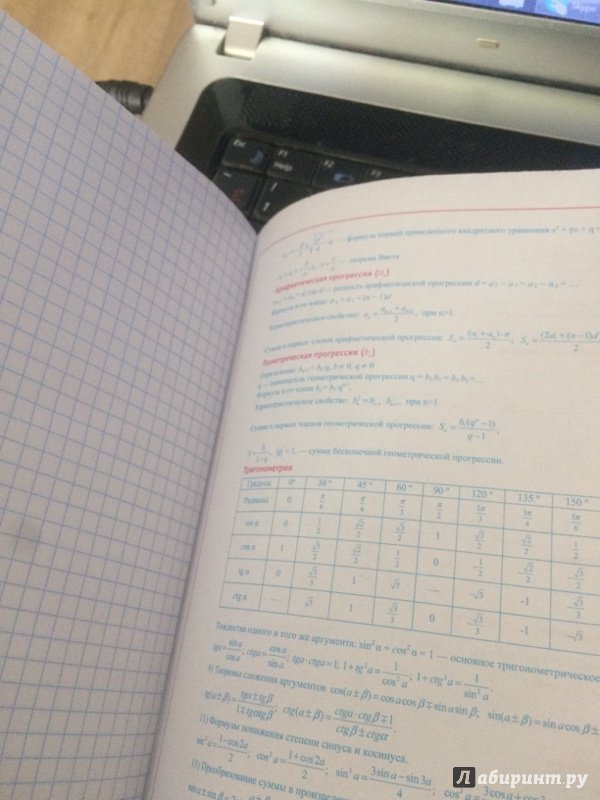 Skype
Esc F1 F2
Help
— формула корней приведенного квадратного уравнения x² + px + q =
— теорема Виета
Арифметическая прогрессия (aₙ)
— разность арифметической прогрессии d = a₂ − a₁ = a₃ − a₂ = ...
Формула n-го члена: aₙ = a₁ + (n − 1)d
Характеристическое свойство: aₙ = (aₙ₋₁ + aₙ₊₁)/2, при n>1
Сумма n первых членов арифметической прогрессии: Sₙ = (a₁ + aₙ)·n/2; Sₙ = (2a₁ + (n − 1)d
Геометрическая прогрессия (bₙ)
Определение: bₙ₊₁ = bₙq, b ≠ 0, q ≠ 0
q — знаменатель геометрической прогрессии
Формула n-го члена bₙ = b₁·qⁿ⁻¹
Характеристическое свойство: bₙ² = bₙ₋₁ · bₙ₊₁, при n>1
Сумма n первых членов геометрической прогрессии: Sₙ = b₁(qⁿ − 1)/(q − 1),
S = b₁/(1−q), |q| < 1, — сумма бесконечной геометрической прогрессии.
Тригонометрия
Градусы 0° 30° 45° 60° 90° 120° 135° 150°
Радианы 0 π/6 π/4 π/3 π/2 2π/3 3π/4 5π/6
sin α 0 1/2 √2/2 √3/2 1 √3/2 √2/2 1/2
cos α 1 √3/2 √2/2 1/2 0 −1/2 −√2/2 −√3/2
tg α 0 √3/3 1 √3 — −√3 −1 −√3/3
ctg α — √3 1 √3/3 0 −√3/3 −1 −√3
Тождества одного и того же аргумента: sin² a + cos² a = 1 — основное тригонометрическое
tga = sin a/cos a; ctga = cos a/sin a; tga · ctga = 1; 1 + tg² a = 1/cos² a; 1 + ctg² a = 1/sin² a
9) Теоремы сложения аргументов cos(a ± β) = cos a cos β ∓ sin a sin β; sin(a ± β) = sin a cos β ±
tg(a ± β) = (tga ± tgβ)/(1 ∓ tgαtgβ); ctg(a ± β) = (ctga · ctgβ ∓ 1)/(ctgβ ± ctgα)
11) Формулы понижения степени синуса и косинуса.
sin² a = (1 − cos 2a)/2; cos² a = (1 + cos 2a)/2; sin³ a = (3 sin a − sin 3a)/4; cos³ a = 3 cos a + cos
13) Преобразование суммы в произведение
Лабиринт.ру